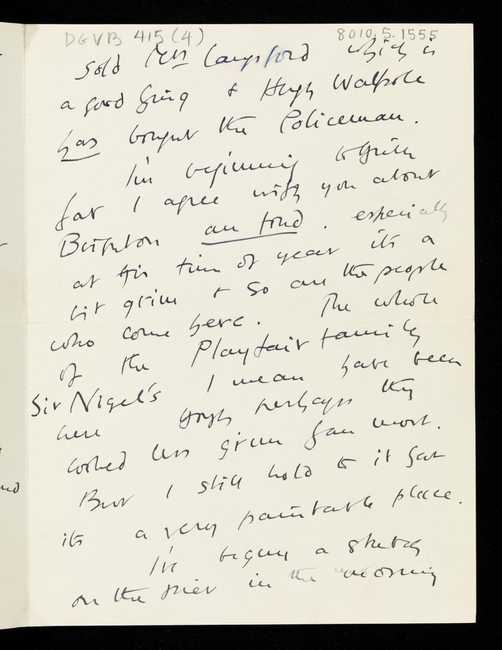 DGVB 415 (4) 8010.5.1555
sold Mrs Langsford which is
a good thing & Hugh Walpole
has bought the Policeman.
I'm beginning to think
that I agree with you about
Brighton au fond. especially
at this time of year its a
bit grim & so are the people
who come here. The whole
of the Playfair family
Sir Nigel's I mean have been
here though perhaps they
looked less grim than most.
But I still hold to it that
its a very paintable place.
I've begun a sketch
on the pier in the morning